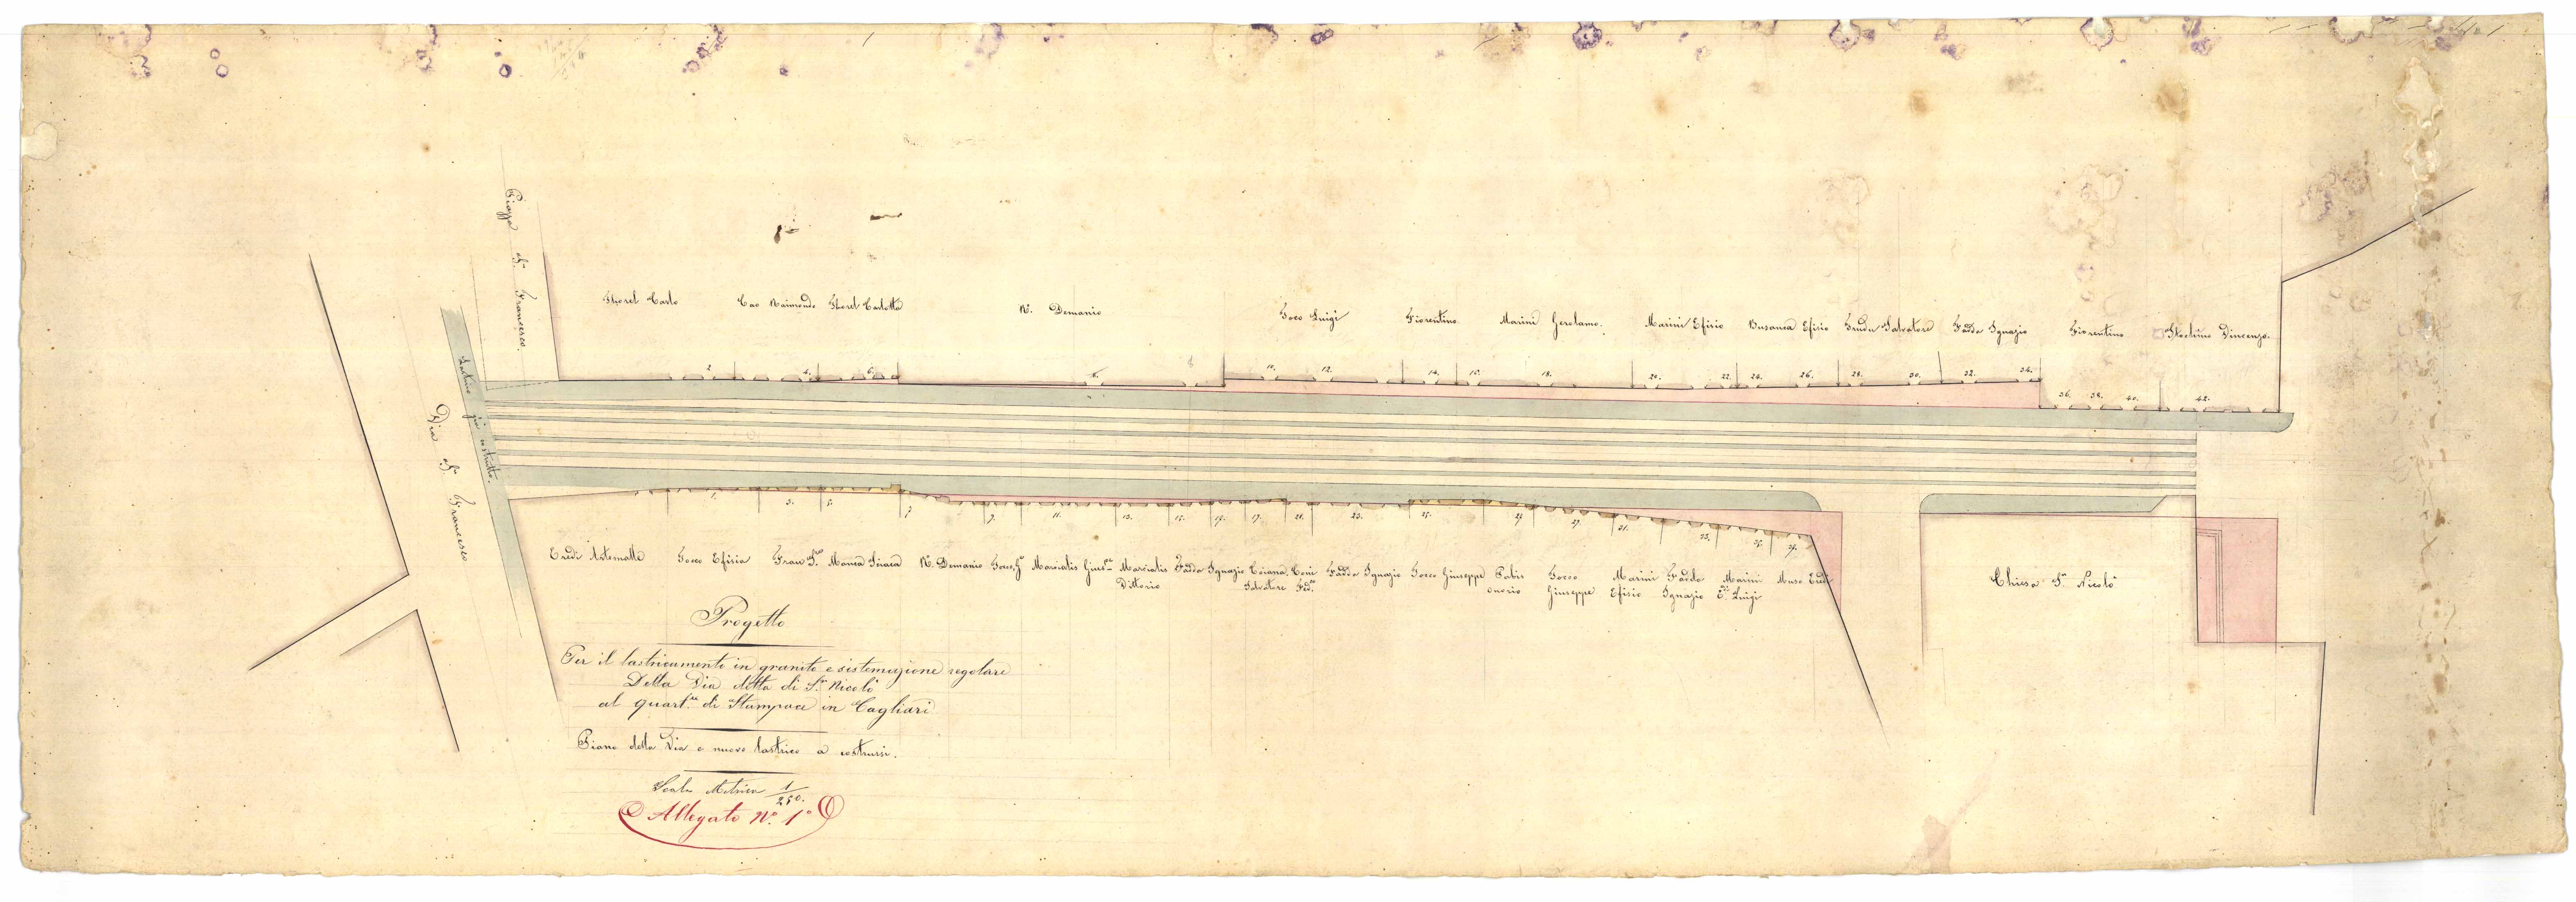 Piazza S.n Francesco.
Lastrico già costrutto.
Via S.n Francesco
Thorel Carlo
Cao Raimondo
Thorel Carlotta
R.o Demanio
Socco Luigi
Fiorentino
Marini Gerolamo.
Marini Efisio
Busanca Efisio
Frudu Salvatore
Fadda Ignazio
Fiorentino
Stochino Vincenzo.
2. 4. 6. 8. 10. 12. 14. 16. 18. 20. 22. 24. 26. 28. 30. 32. 34. 36. 38. 40. 42.
1. 3. 5. 7. 9. 11. 13. 15. 17. 21. 23. 25. 27. 31. 33. 35. 37.
Eredi Artemalle
Socco Efisia
Manca Sciaca
R.o Demanio
Marcialis
Marcialis Vittorio
Fadda Ignazio
Coiana Salvatore
Fadda Ignazio
Socco Giuseppe
Pabis onorio
Socco Giuseppe
Marini Efisio
Fadda Ignazio
Marini E.di Luigi
Muso Eredi
Chiesa S.n Nicolò
Progetto
Per il lastricamento in granito e sistemazione regolare
Della Via detta di S.n Nicolò
al quart.re di Stampace in Cagliari
Piano della Via e nuovo lastrico a costrursi.
Scala Metrica 1/250.
Allegato N.o 1.o